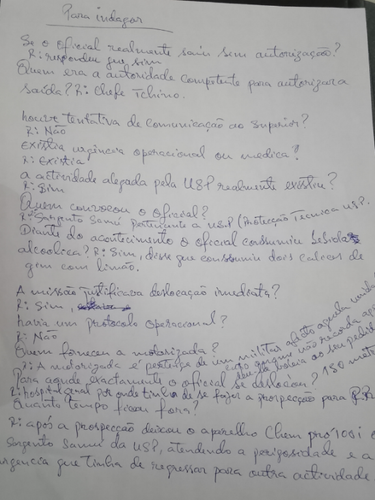 Para indagar
Se o oficial realmente saiu sem autorização?
R: respondeu que sim
Quem era a autoridade competente para autorizar a
saída? R: Chefe Tchino.
houve tentativa de comunicação ao superior?
R: Não
existia urgência operacional ou medica?
R: Existia
a actividade alegada pela USP realmente existiu?
R: Sim
Quem convocou o oficial?
R: Sargento Samu pertencente a USP (Protecção Técnica USP.
Diante do acontecimento o oficial consumiu bebidas
alcoolica? R: Sim, disse que consumiu dois calces de
gim com limão.
A missão justificava deslocação imediata?
R: Sim,
havia um protocolo operacional?
R: Não
Quem forneceu a motorizada?
R: A motorizada é pertença de um militar adido aquela
cujo nome não recorda
havia ao seu
Para aonde exactamente o oficial se deslocou? 150 metr
R: hospital geral por onde tinha de se fazer a prospecção para
Quanto tempo ficou fora?
R: após a prospecção deixou o aparelho Chem pró 100i
Sargento Samu da USP, atendendo a perigosidade e a
urgencia que tinha de regressar para outra actividade